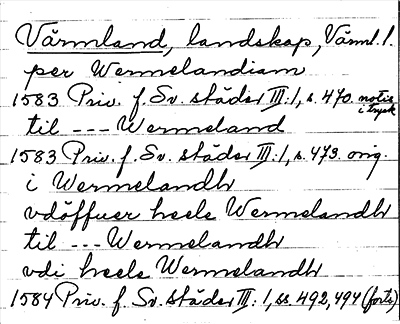 Värmland, landskap, Värml. l.
per Wermelandiam
1583 Priv. f. Sv. städer III:1, s. 470. notis i tryck
til --- Wermeland
1583 Priv. f. Sv. städer III:1, s. 473. orig.
i Wermelandh
vdöffuer heele Wermelandh
til --- Wermelandh
vdi heele Wermelandh
1584 Priv. f. Sv. städer III:1, ss. 492, 494 (forts)